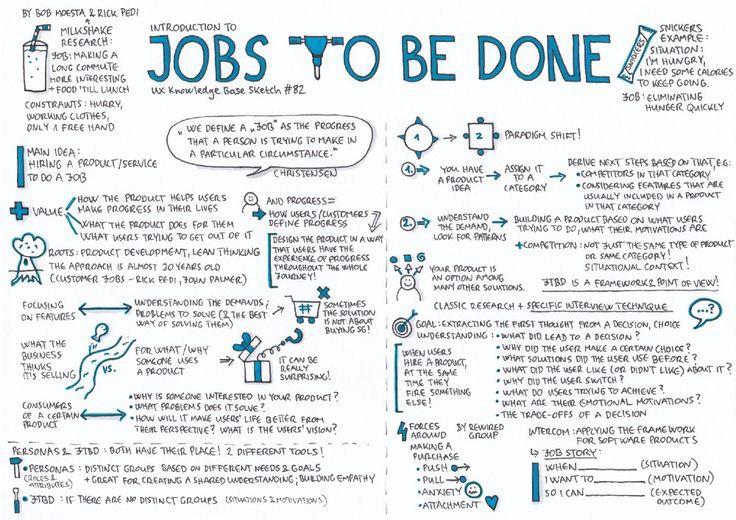 BY BOB MOESTA & RICK PEDI
MILKSHAKE
RESEARCH:
JOB: MAKING A
LONG COMMUTE
MORE INTERESTING
+ FOOD 'TILL LUNCH
CONSTRAINTS: HURRY,
WORKING CLOTHES,
ONLY 1 FREE HAND
INTRODUCTION TO
JOBS TO BE DONE
UX Knowledge Base Sketch #82
SNICKERS
SNICKERS
EXAMPLE:
SITUATION:
I'M HUNGRY,
I NEED SOME CALORIES
TO KEEP GOING.
JOB: ELIMINATING
HUNGER QUICKLY
MAIN IDEA:
HIRING A PRODUCT/SERVICE
TO DO A JOB
"WE DEFINE A „JOB" AS THE PROGRESS
THAT A PERSON IS TRYING TO MAKE IN
A PARTICULAR CIRCUMSTANCE."
CHRISTENSEN
VALUE
HOW THE PRODUCT HELPS USERS
MAKE PROGRESS IN THEIR LIVES
WHAT THE PRODUCT DOES FOR THEM
WHAT USERS TRYING TO GET OUT OF IT
AND PROGRESS=
HOW USERS/CUSTOMERS
DEFINE PROGRESS
DESIGN THE PRODUCT IN A WAY
THAT USERS HAVE THE
EXPERIENCE OF PROGRESS
THROUGHOUT THE WHOLE
JOURNEY!
ROOTS: PRODUCT DEVELOPMENT, LEAN THINKING
THE APPROACH IS ALMOST 20 YEARS OLD
(CUSTOMER JOBS - RICK PEDI, JOHN PALMER)
FOCUSING
ON FEATURES
UNDERSTANDING THE DEMANDS;
PROBLEMS TO SOLVE (& THE BEST
WAY OF SOLVING THEM)
SOMETIMES
THE SOLUTION
IS NOT ABOUT
BUYING SG!
WHAT THE
BUSINESS
THINKS
IT'S SELLING
VS.
FOR WHAT / WHY
SOMEONE USES
A PRODUCT
IT CAN BE
REALLY
SURPRISING!
CONSUMERS
OF A CERTAIN
PRODUCT
• WHY IS SOMEONE INTERESTED IN YOUR PRODUCT?
• WHAT PROBLEMS DOES IT SOLVE?
• HOW WILL IT MAKE USERS' LIFE BETTER FROM
THEIR PERSPECTIVE? WHAT IS THE USERS' VISION?
PERSONAS & JTBD: BOTH HAVE THEIR PLACE! 2 DIFFERENT TOOLS!
• PERSONAS: DISTINCT GROUPS BASED ON DIFFERENT NEEDS & GOALS
(ROLES & ATTRIBUTES) + GREAT FOR CREATING A SHARED UNDERSTANDING; BUILDING EMPATHY
• JTBD: IF THERE ARE NO DISTINCT GROUPS (SITUATIONS & MOTIVATIONS)
1 → 2 PARADIGM SHIFT!
1. → YOU HAVE
A PRODUCT
IDEA
→ ASSIGN IT
TO A
CATEGORY
→ DERIVE NEXT STEPS BASED ON THAT, E.G:
• COMPETITORS IN THAT CATEGORY
• CONSIDERING FEATURES THAT ARE
USUALLY INCLUDED IN A PRODUCT
IN THAT CATEGORY
2. → UNDERSTAND
THE DEMAND,
LOOK FOR PATTERNS
→ BUILDING A PRODUCT BASED ON WHAT USERS
TRYING TO DO, WHAT THEIR MOTIVATIONS ARE
+ COMPETITION: NOT JUST THE SAME TYPE OF PRODUCT
OR SAME CATEGORY!
SITUATIONAL CONTEXT!
YOUR PRODUCT IS
AN OPTION AMONG
MANY OTHER SOLUTIONS.
JTBD IS A FRAMEWORK & POINT OF VIEW!
CLASSIC RESEARCH + SPECIFIC INTERVIEW TECHNIQUE
...?
GOAL: EXTRACTING THE FIRST THOUGHT FROM A DECISION, CHOICE
UNDERSTANDING: • WHAT DID LEAD TO A DECISION?
• WHY DID THE USER MAKE A CERTAIN CHOICE?
• WHAT SOLUTIONS DID THE USER USE BEFORE?
• WHAT DID THE USER LIKE (OR DIDN'T LIKE) ABOUT IT?
• WHY DID THE USER SWITCH?
• WHAT DO USERS TRYING TO ACHIEVE?
• WHAT ARE THEIR EMOTIONAL MOTIVATIONS?
• THE TRADE-OFFS OF A DECISION
WHEN USERS
HIRE A PRODUCT,
AT THE SAME
TIME THEY
FIRE SOMETHING
ELSE!
4 FORCES BY REWIRED
AROUND GROUP
MAKING A
PURCHASE
• PUSH
• PULL
• ANXIETY
• ATTACHMENT
INTERCOM: APPLYING THE FRAMEWORK
FOR SOFTWARE PRODUCTS
JOB STORY:
WHEN ________ (SITUATION)
I WANT TO ________ (MOTIVATION)
SO I CAN ________ (EXPECTED
OUTCOME)